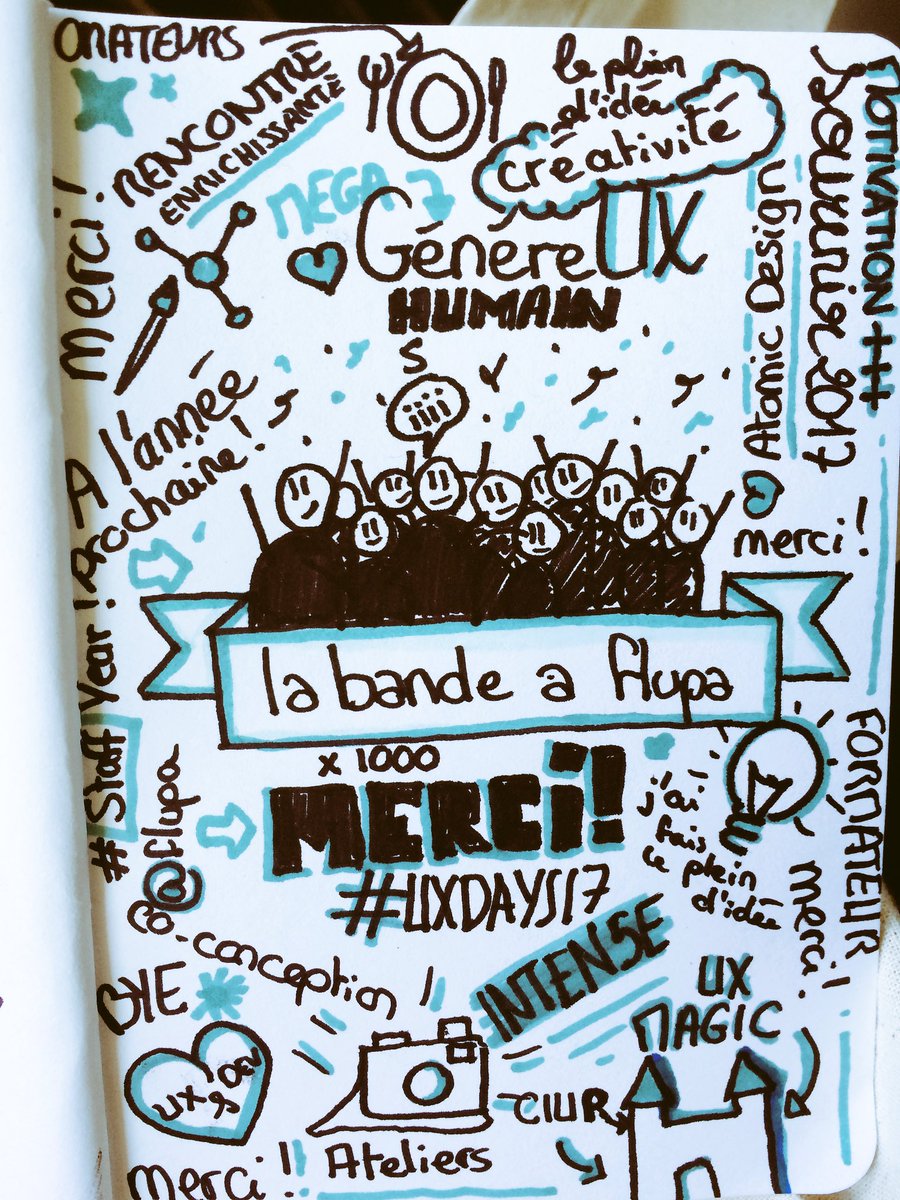 ORATEURS
RENCONTRE
ENRICHISSANTE
le plein
d'idée
créativité
MOTIVATION +++
Souvenir 2017
Atomic Design
MEGA
GénéreUX
HUMAIN
Merci!
A l'année
prochaine!
iiii
merci!
la bande a flupa
#Staff Vear!
@flupa
x 1000
MERCi!
#UXDAYS17
j'ai
fais
le plein
d'idée
FORMATEUR!
merci!
co-conception
INTENSE
BYE
UX
DEV
UX
MAGIC
Ateliers
Merci!!